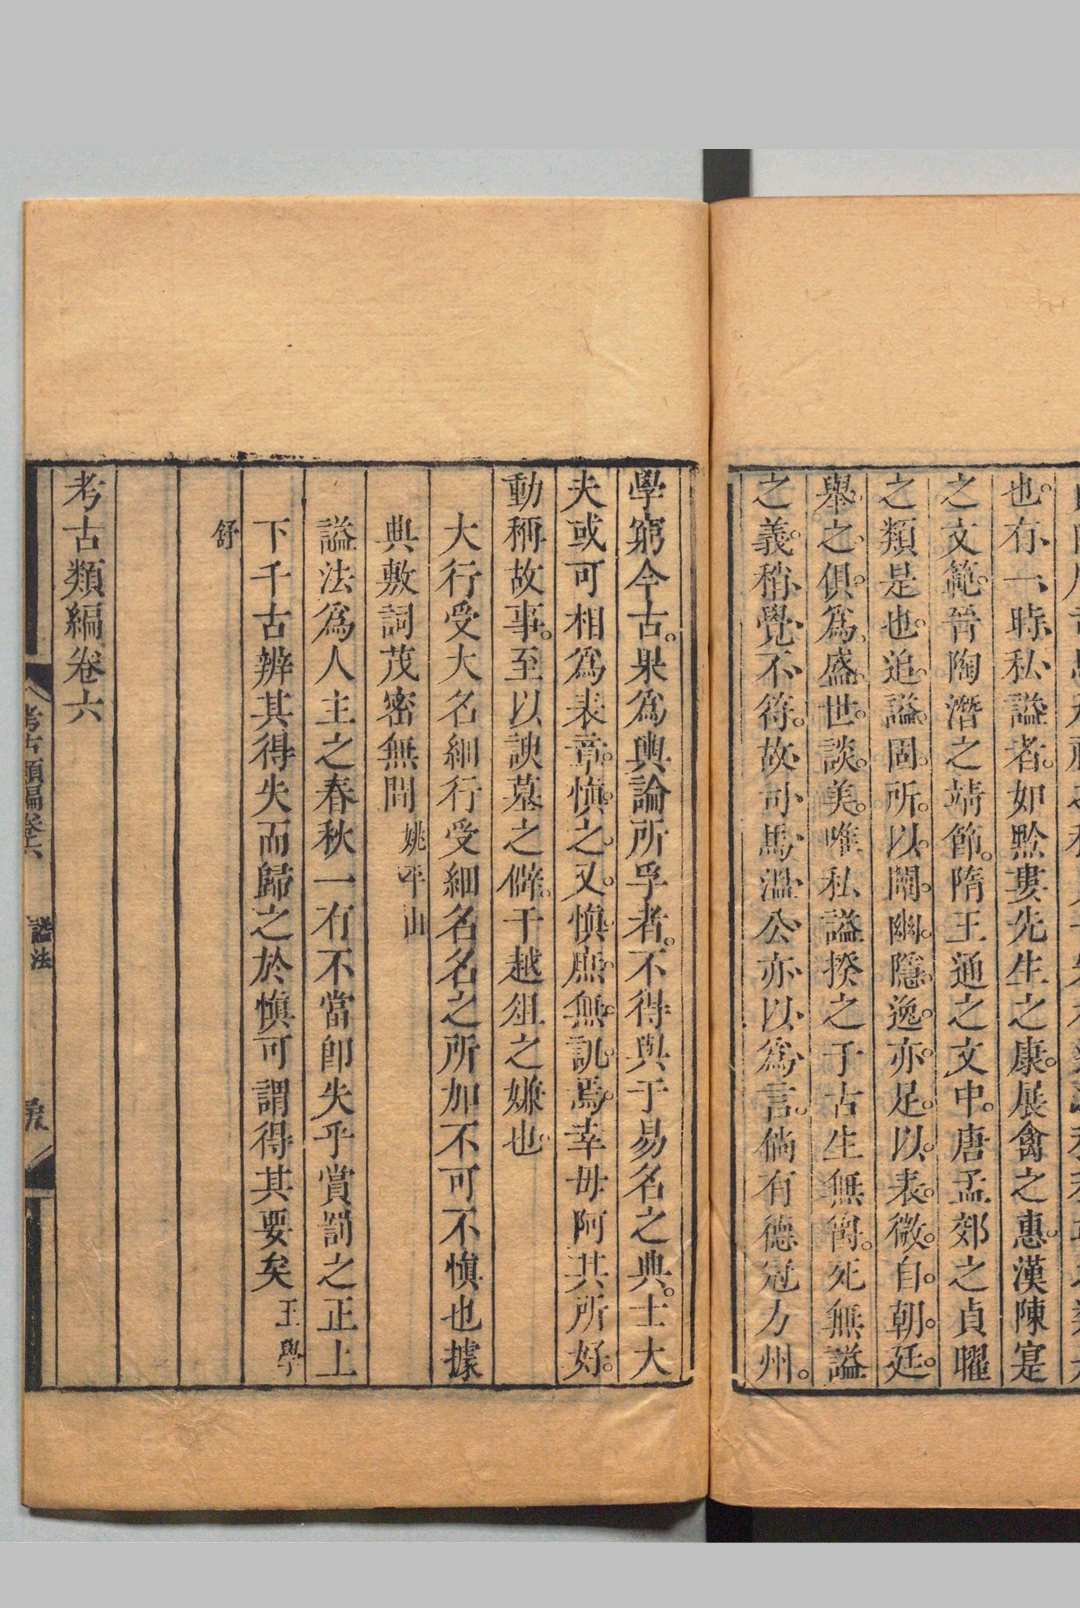 也。有一時私謚者。如黔婁先生之康。展禽之惠。漢陳寔
之文範。晉陶潛之靖節。隋王通之文中。唐孟郊之貞曜
之類是也。追謚固所以闡幽隱逸亦足以表微。自朝廷
舉之俱為盛世談美。唯私謚揆之于古生無爵。死無謚
之義。稍覺不符。故司馬溫公亦以為言。倘有德冠方州。
學窮今古。果為輿論所孚者。不得與于易名之典。士大
夫或可相為表章。慎之又慎。庶無譏焉。幸毋阿其所好。
動稱故事。至以諛墓之僻。于越俎之嫌也。
大行受大名細行受細名名之所加不可不慎也據
典敷詞茂密無間 姚平山
謚法為人主之春秋一有不當卽失乎賞罰之正上
下千古辨其得失而歸之於慎可謂得其要矣 王學
舒
考古類編卷六
考古類編卷六 謚法